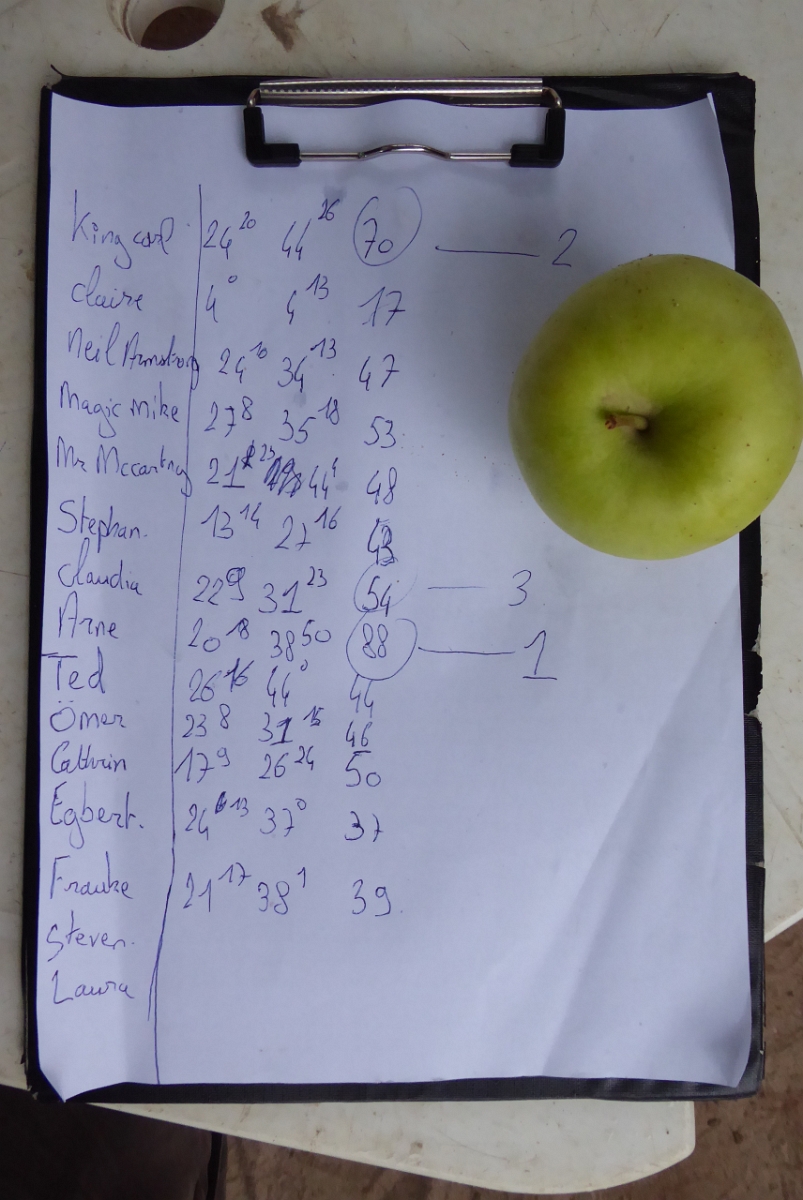 King carl 24 20 44 26 70 — 2
Claire 4 0 4 13 17
Neil Armstrong 24 10 34 13 47
Magic Mike 27 8 35 18 53
Mr Mccartney 21 23 44 4 48
Stephan. 13 14 27 16 43
Claudia 22 9 31 23 54 — 3
Arne 20 18 38 50 88 — 1
Ted 26 16 44 0 44
Ömer 23 8 31 15 46
Cathrin 17 9 26 24 50
Egbert. 24 13 37 0 37
Frauke 21 17 38 1 39
Steven.
Laura